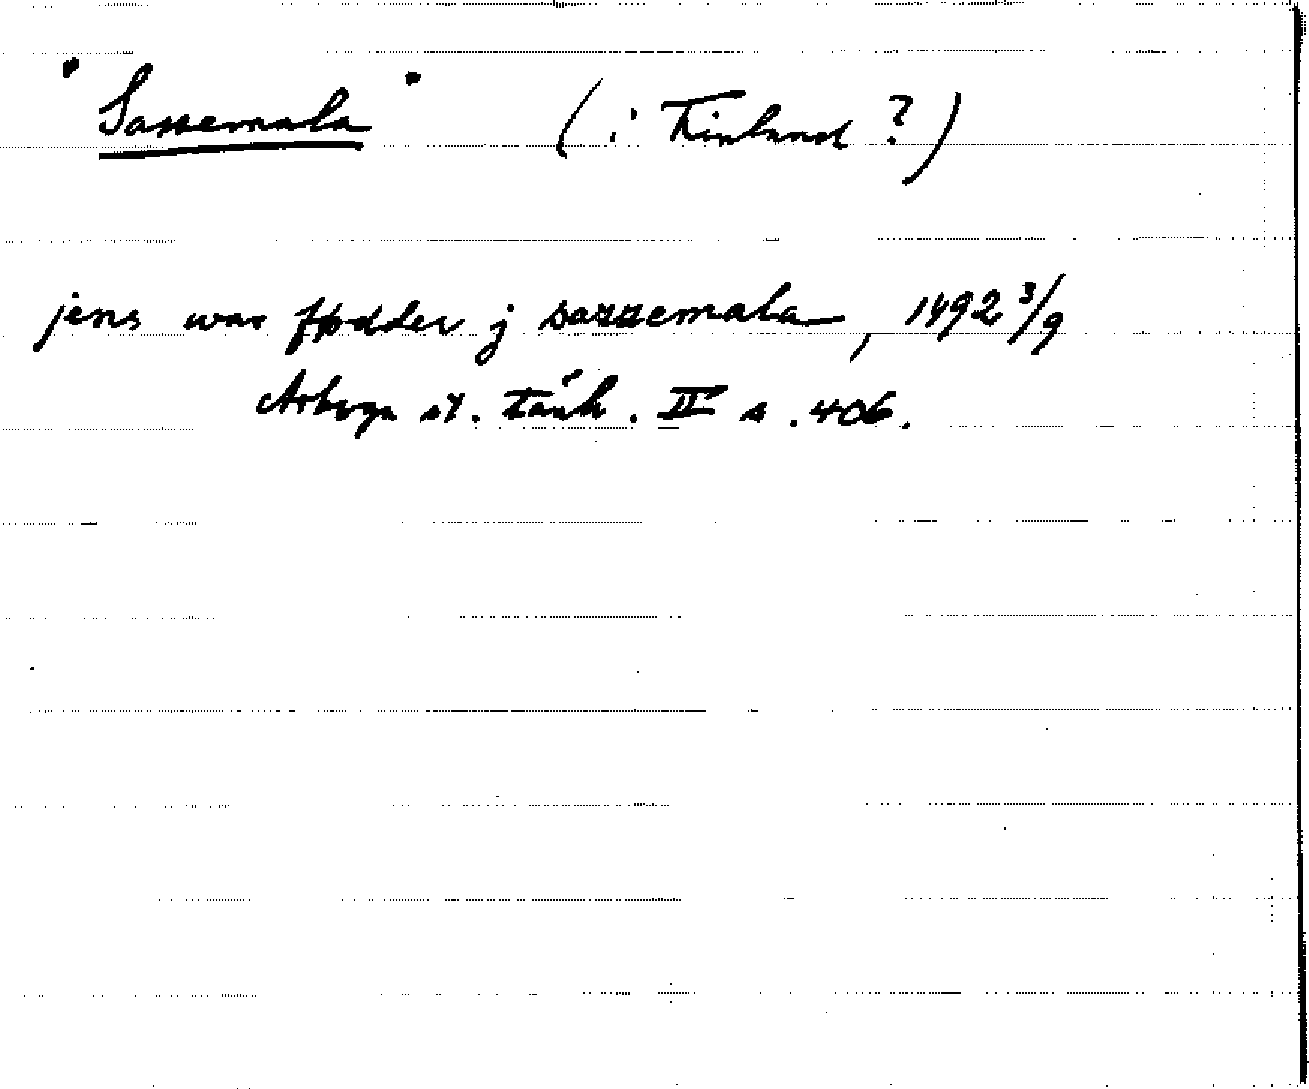 "Sassemala" (i Finland?)
jens war fødder j sazzemala, 1492 3/9
Arboga st. tänk. II s. 406.